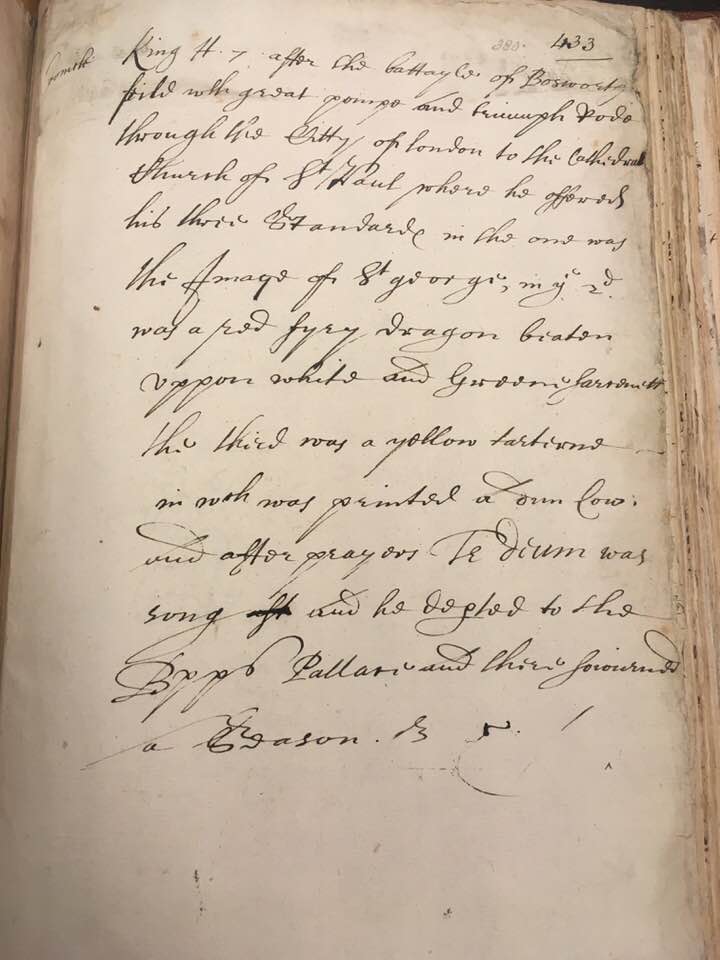 380. 433
King H. 7 after the battayle of Bosworth
feild wth great pompe and triumph Rode
through the Citty of london to the Cathedral
Church of St Paul where he offered
his three Standards in the one was
the Image of St george, in ye 2d.
was a red fyry dragon beaten
vppon white and Greene sarcenett
the third was a yellow tarterne
in wch was printed a dun Cow.
and after prayers Te deum was
song aft and he depted to the
Bpps Pallace and there soiourned
a Season.